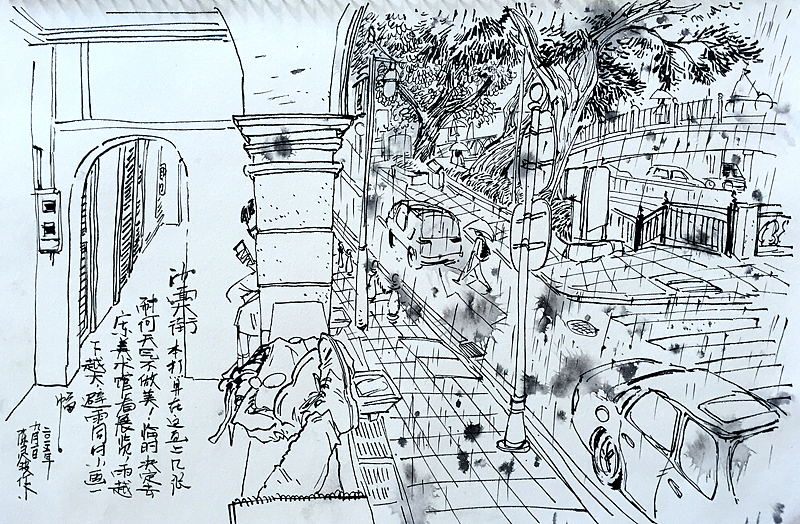 沙面街本打算在这画上几张
耐何天气不做美！临时决定去
广东美术馆看展览，雨越
下越大避雨同时小画一
幅
二〇一五年
九月一日